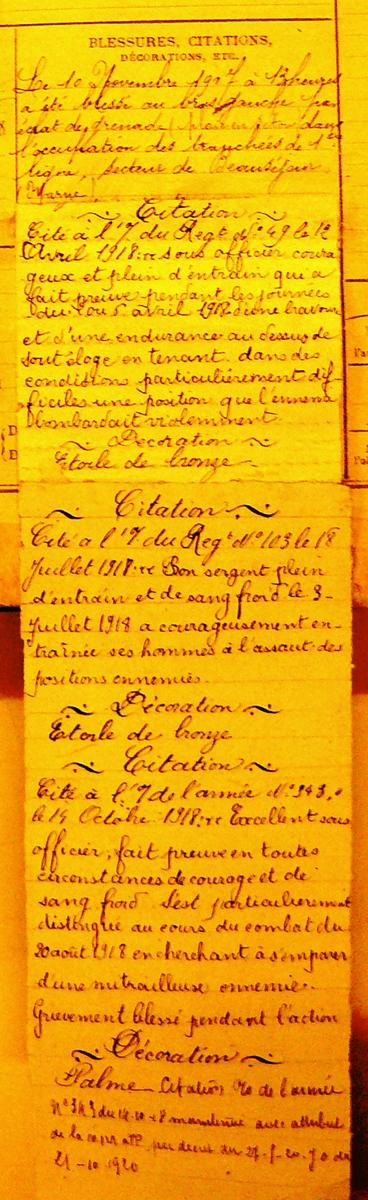 BLESSURES, CITATIONS,
DÉCORATIONS, ETC.
Le 10 Novembre 1917 à 13 heures
a été blessé au bras gauche par
éclat de grenade dans
l'occupation des tranchées de 1ère
ligne, secteur de Beauséjour
Marne
~ Citation ~
Cité à l'O/ du Régt N° 49 le 12
Avril 1918: « Sous officier coura
geux et plein d'entrain qui a
fait preuve pendant les journées
du au 5 avril 1918 d'une bravoure
et d'une endurance au dessus de
tout éloge en tenant dans des
conditions particulièrement dif-
ficiles une position que l'ennemi
bombardait violemment
~ Décoration ~
Étoile de bronze
~ Citation ~
Cité à l'O/ du Régt N° 103 le 18
Juillet 1918: « Bon sergent plein
d'entrain et de sang froid le 3-
Juillet 1918 a courageusement en-
traînée ses hommes à l'assaut des
positions ennemies.
~ Décoration ~
Étoile de bronze
~ Citation ~
Cité à l'O/ de l'armée N° 343,
le 14 Octobre 1918: « Excellent sous
officier, fait preuve en toutes
circonstances de courage et de
sang froid. S'est particulièrement
distingué au cours du combat du
20 août 1918 en cherchant à s'emparer
d'une mitrailleuse ennemie.
Grièvement blessé pendant l'action
~ Décoration ~
Palme Citation de l'armée
N° 343 du 14-10-18 maintenue avec attribut
de la par decret du J O du
21-10 1920